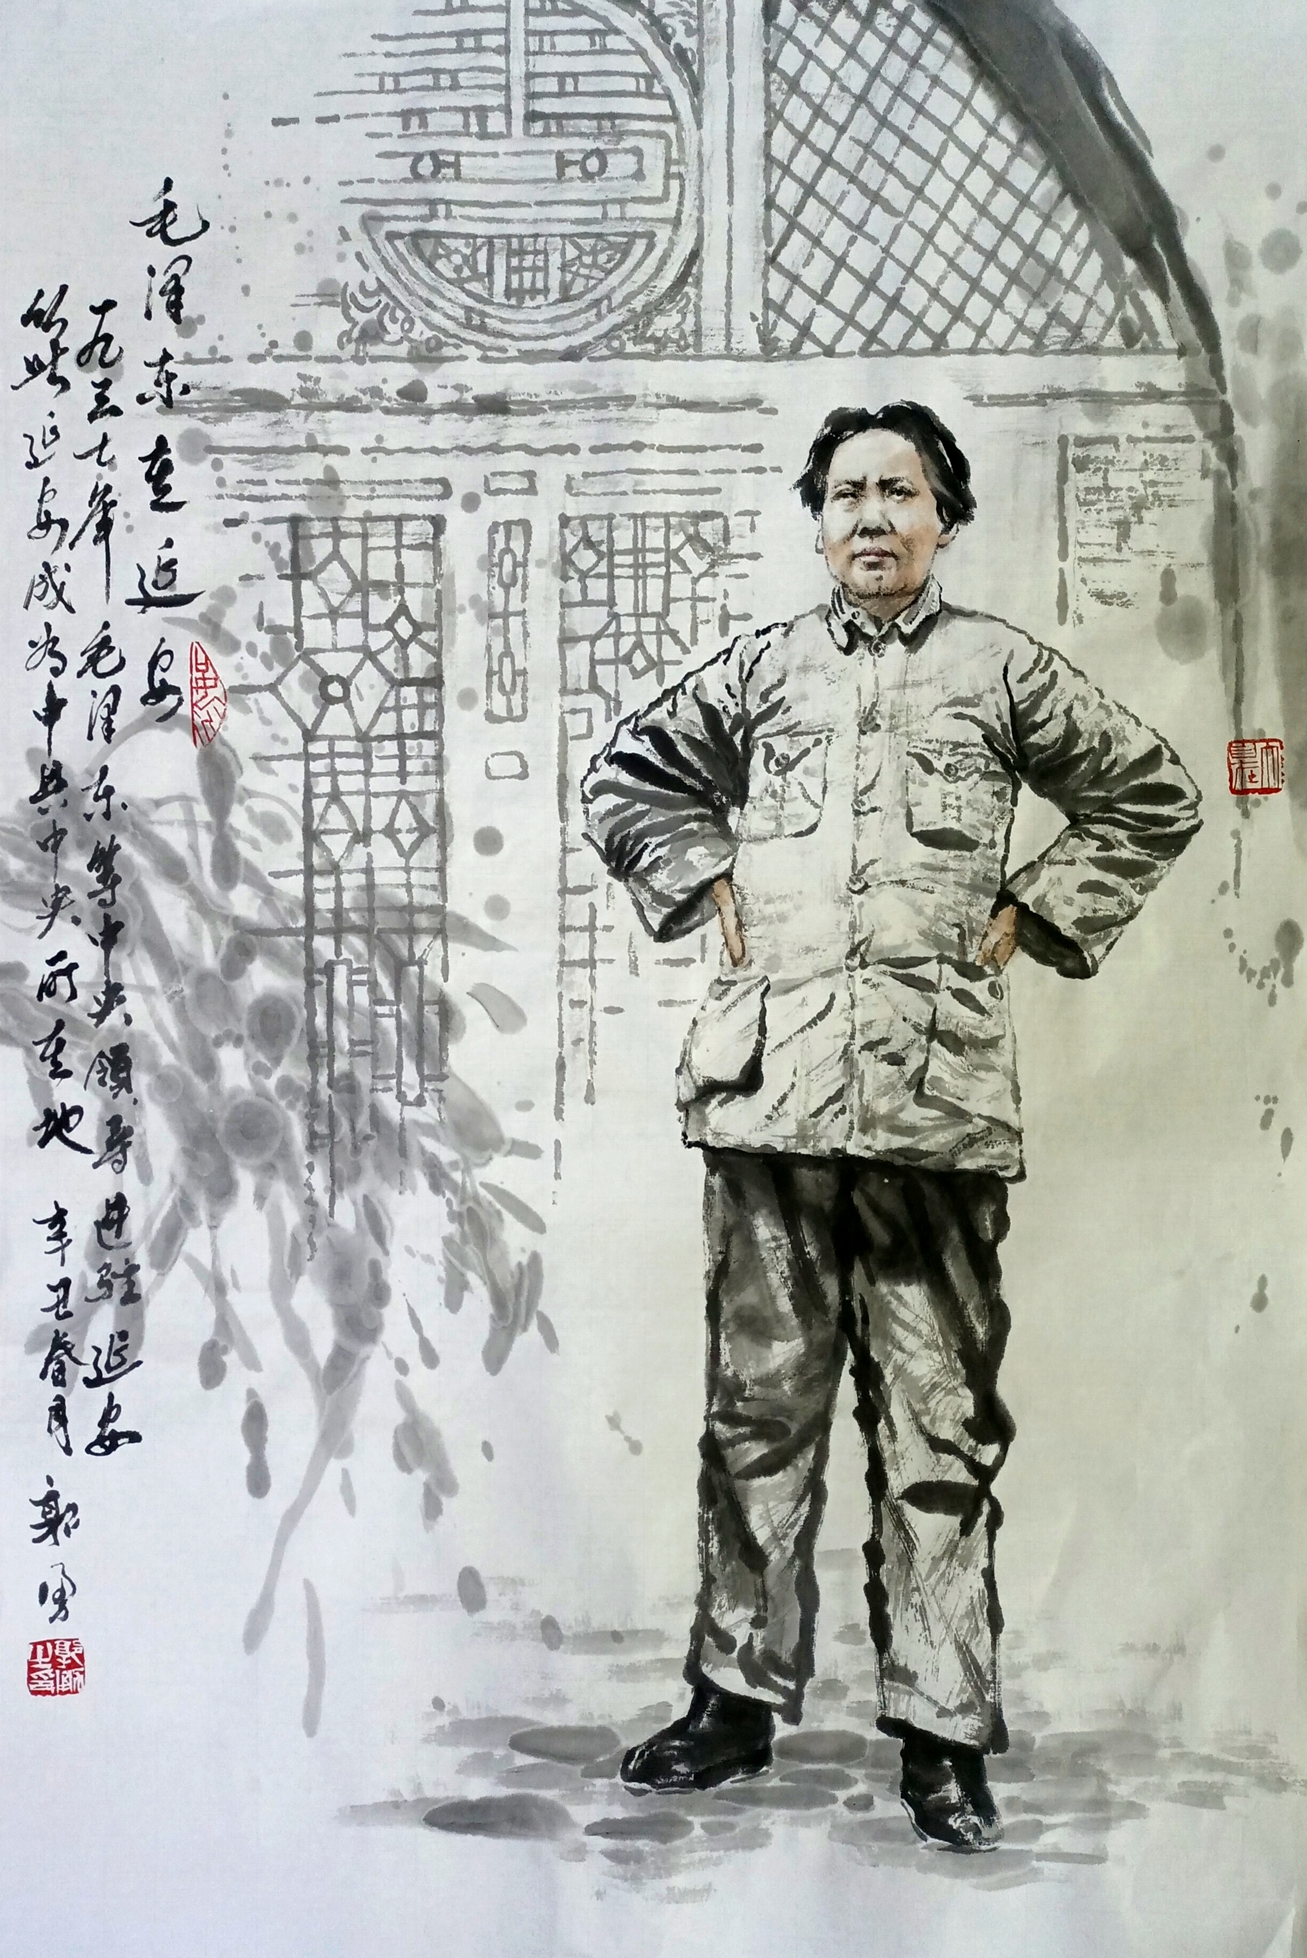 毛泽东在延安
一九三七年毛泽东等中央領导进驻延安
从此延安成为中共中央所在地 辛丑春月 郭勇